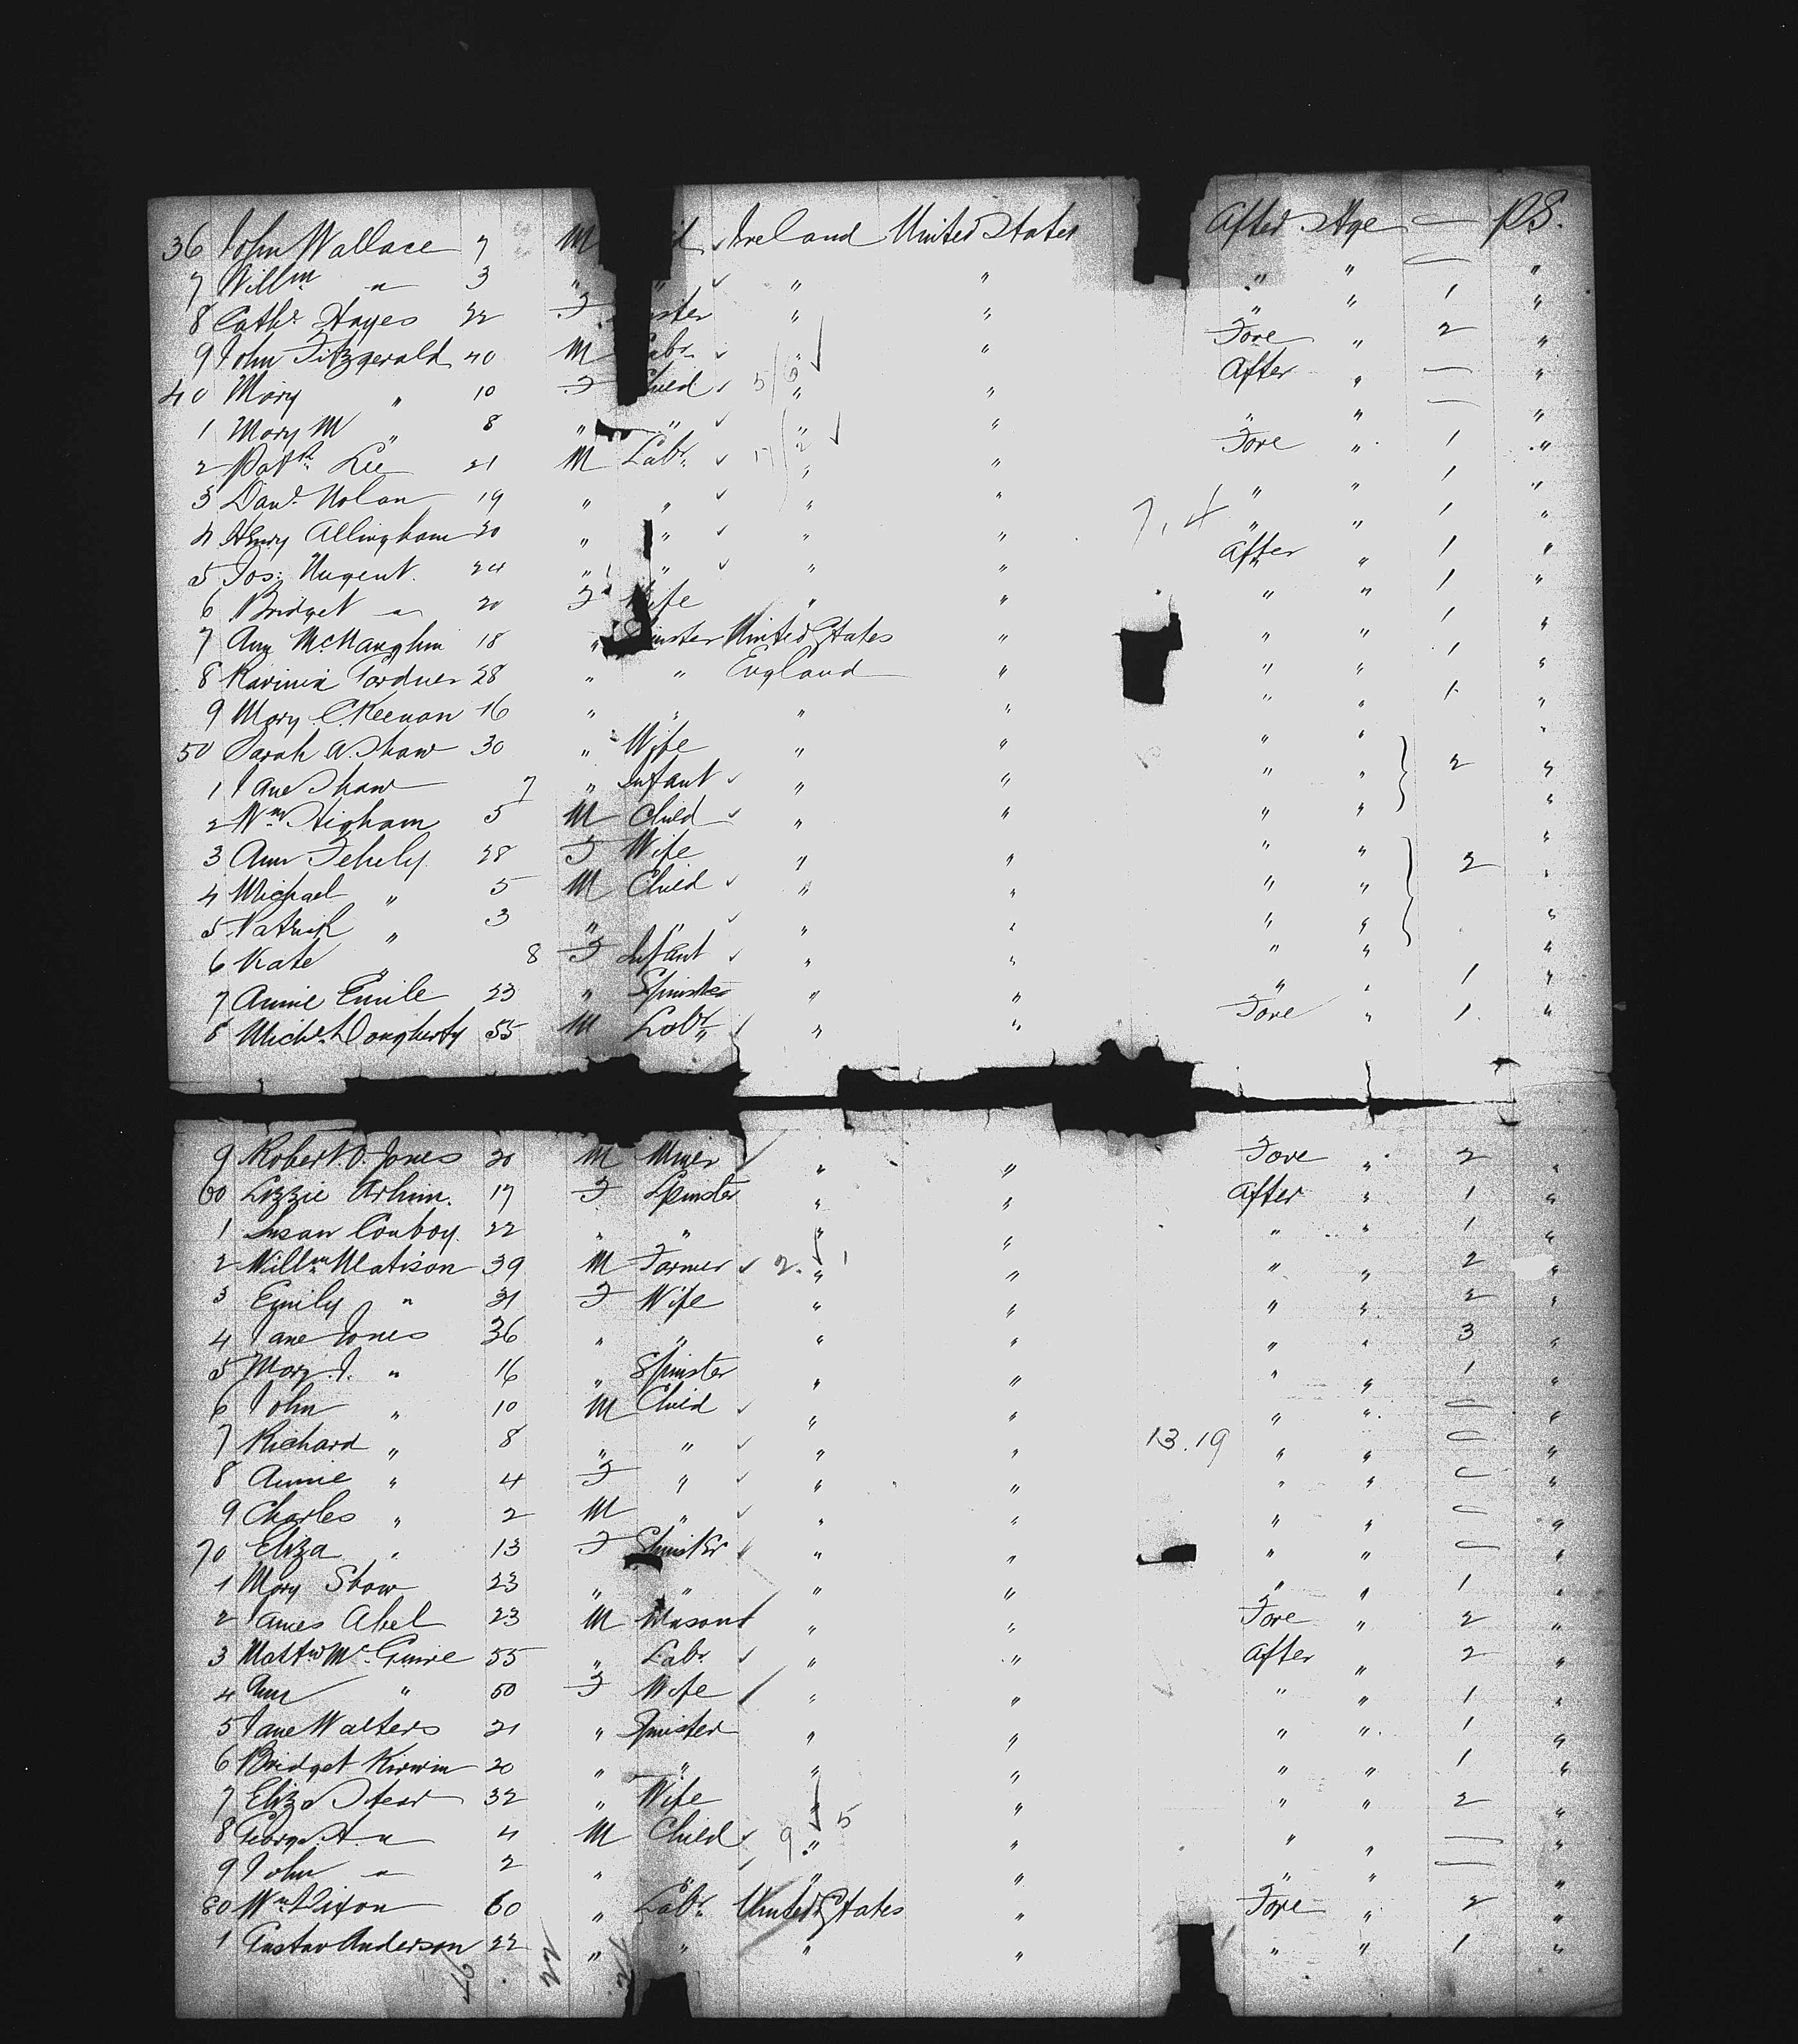 36 John Wallace 7 M Ireland United States After Stge — P.S.
7 Willm " 3 " " " " " " — "
8 Cathe Hayes 22 F " " " " 1 "
9 John Fitzgerald 40 M Labr " " Fore " 2 "
40 Mary " 10 F Child " " After " — "
1 Mary M " 8 " " " " " " — "
2 Patk Lee 21 M Labr " " Fore " 1 "
3 Danl Nolan 19 " " " " " " 1 "
4 Henry Allingham 20 " " " " " " 1 "
5 Jos: Nugent 24 " " " " After " 1 "
6 Bridget " 20 F Wife " " " " 1 "
7 Ann McNaughin 18 " United States " " " 1 "
8 Gardner 28 " " England " " " 1 "
9 Mary C. Keenan 16 " " " " " " 1 "
50 Sarah A. Shaw 30 " Wife " " " " 2 "
1 Jane Shaw 7 " Infant " " " " "
2 Wm Higham 5 M Child " " " " "
3 Ann Fehely 28 F Wife " " " " 2 "
4 Michael " 5 M Child " " " " "
5 Patrick " 3 " " " " " " "
6 Kate " 8 F Infant " " " " "
7 Annie Emile 23 " Spinster " " " " 1 "
8 Michl Dougherty 55 M Labr " " Fore " 1 "
9 Robert O. Jones 20 M Miner " " Fore " 2 "
60 Lizzie 17 F Spinster " " After " 1 "
1 Susan Conboy 22 " " " " " " 1 "
2 Willm Matison 39 M Farmer 2. " 1 " " " 2 "
3 Emily " 31 F Wife " " " " 2 "
4 Jane Jones 36 " " " " " " 3 "
5 Mary J. " 16 " Spinster " " " " 1 "
6 John " 10 M Child " " " " — "
7 Richard " 8 " " " " 13.19 " " — "
8 Annie " 4 F " " " " " — "
9 Charles " 2 M " " " " " — "
70 Eliza " 13 F Spinster " " " " — "
1 Mary Shaw 23 " " " " " " 1 "
2 James Abel 23 M Mason " " Fore " 2 "
3 Mattw McGuire 55 " Labr " " After " 2 "
4 Ann " 50 F Wife " " " " 1 "
5 Jane Walters 21 " Spinster " " " " 1 "
6 Bridget Kirwin 20 " " " " " " 1 "
7 Eliza Stead 32 " Wife " " " " 2 "
8 George H. " 4 M Child 9 " 5 " " " — "
9 John " 2 " " " " " " — "
80 Wm Dixon 60 " Labr United States " Fore " 2 "
1 Gustav Anderson 22 " " " " " " 1 "